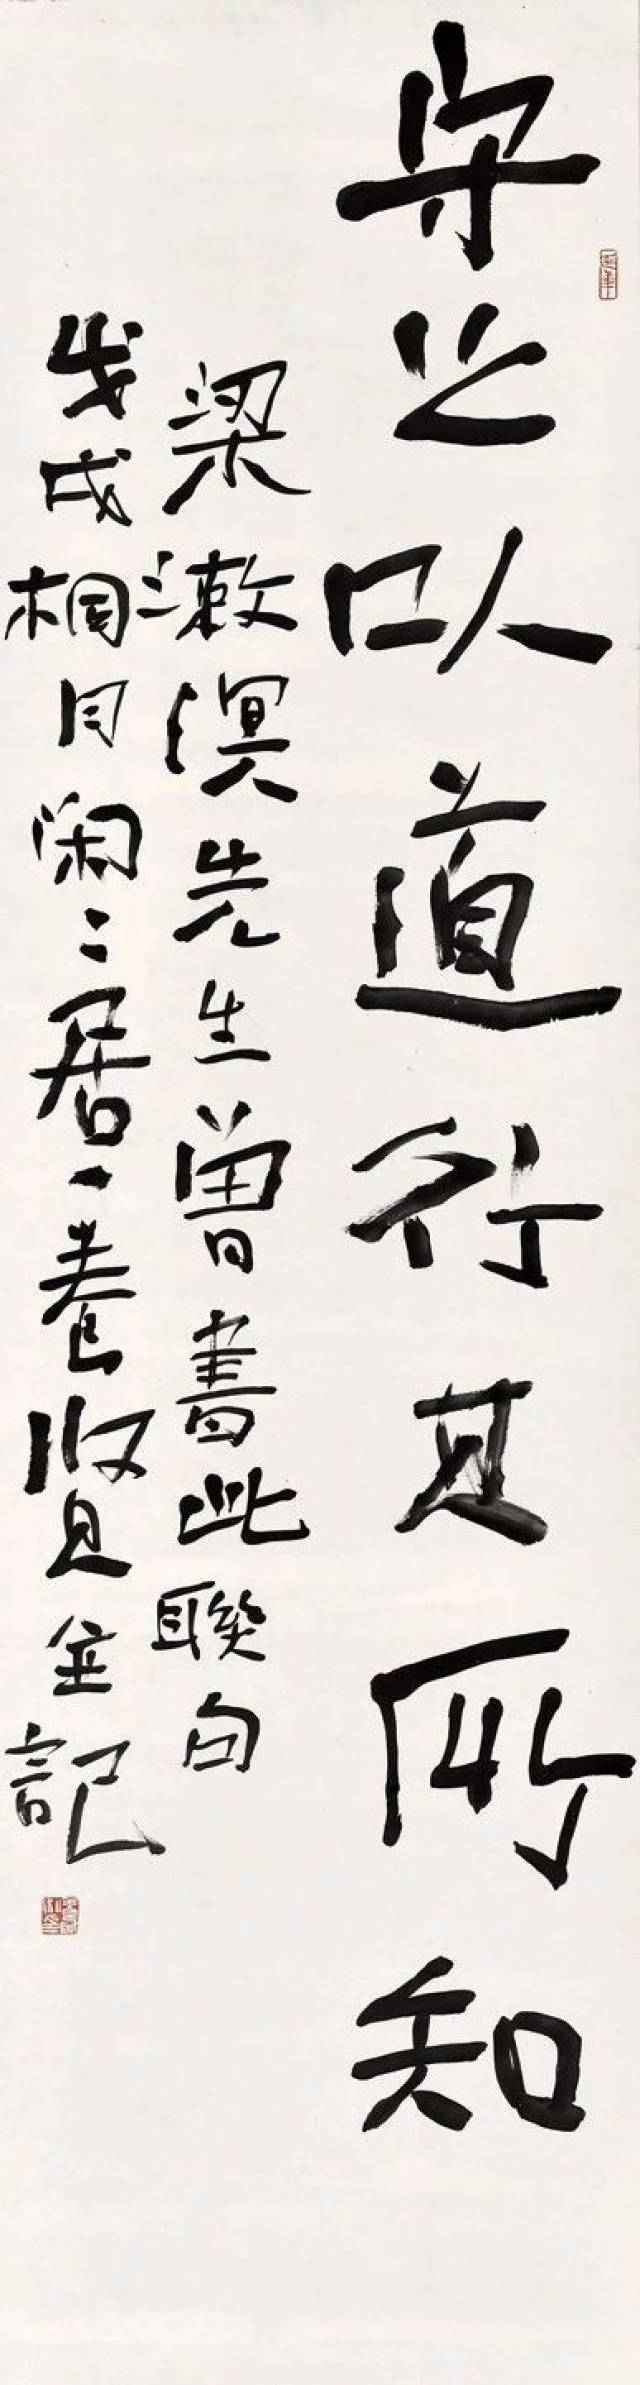 守之以道行其所知
梁漱溟先生曾書此聯句
戊戌桐月閑〻居一養賢並記